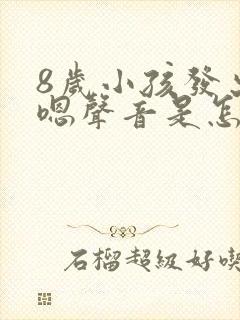 8歲小孩發
嗯聲音是怎
石榴超級好